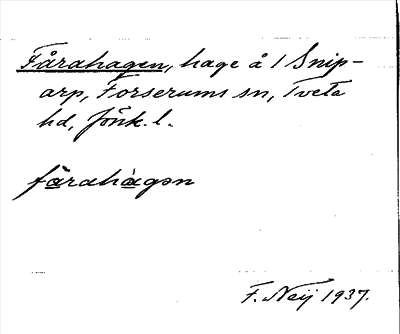 Fårahagen, hage å 1 Snip-
arp, Forserums sn, Tveta
hd, Jönk. l.
fårahàgən
F. Neij 1937.